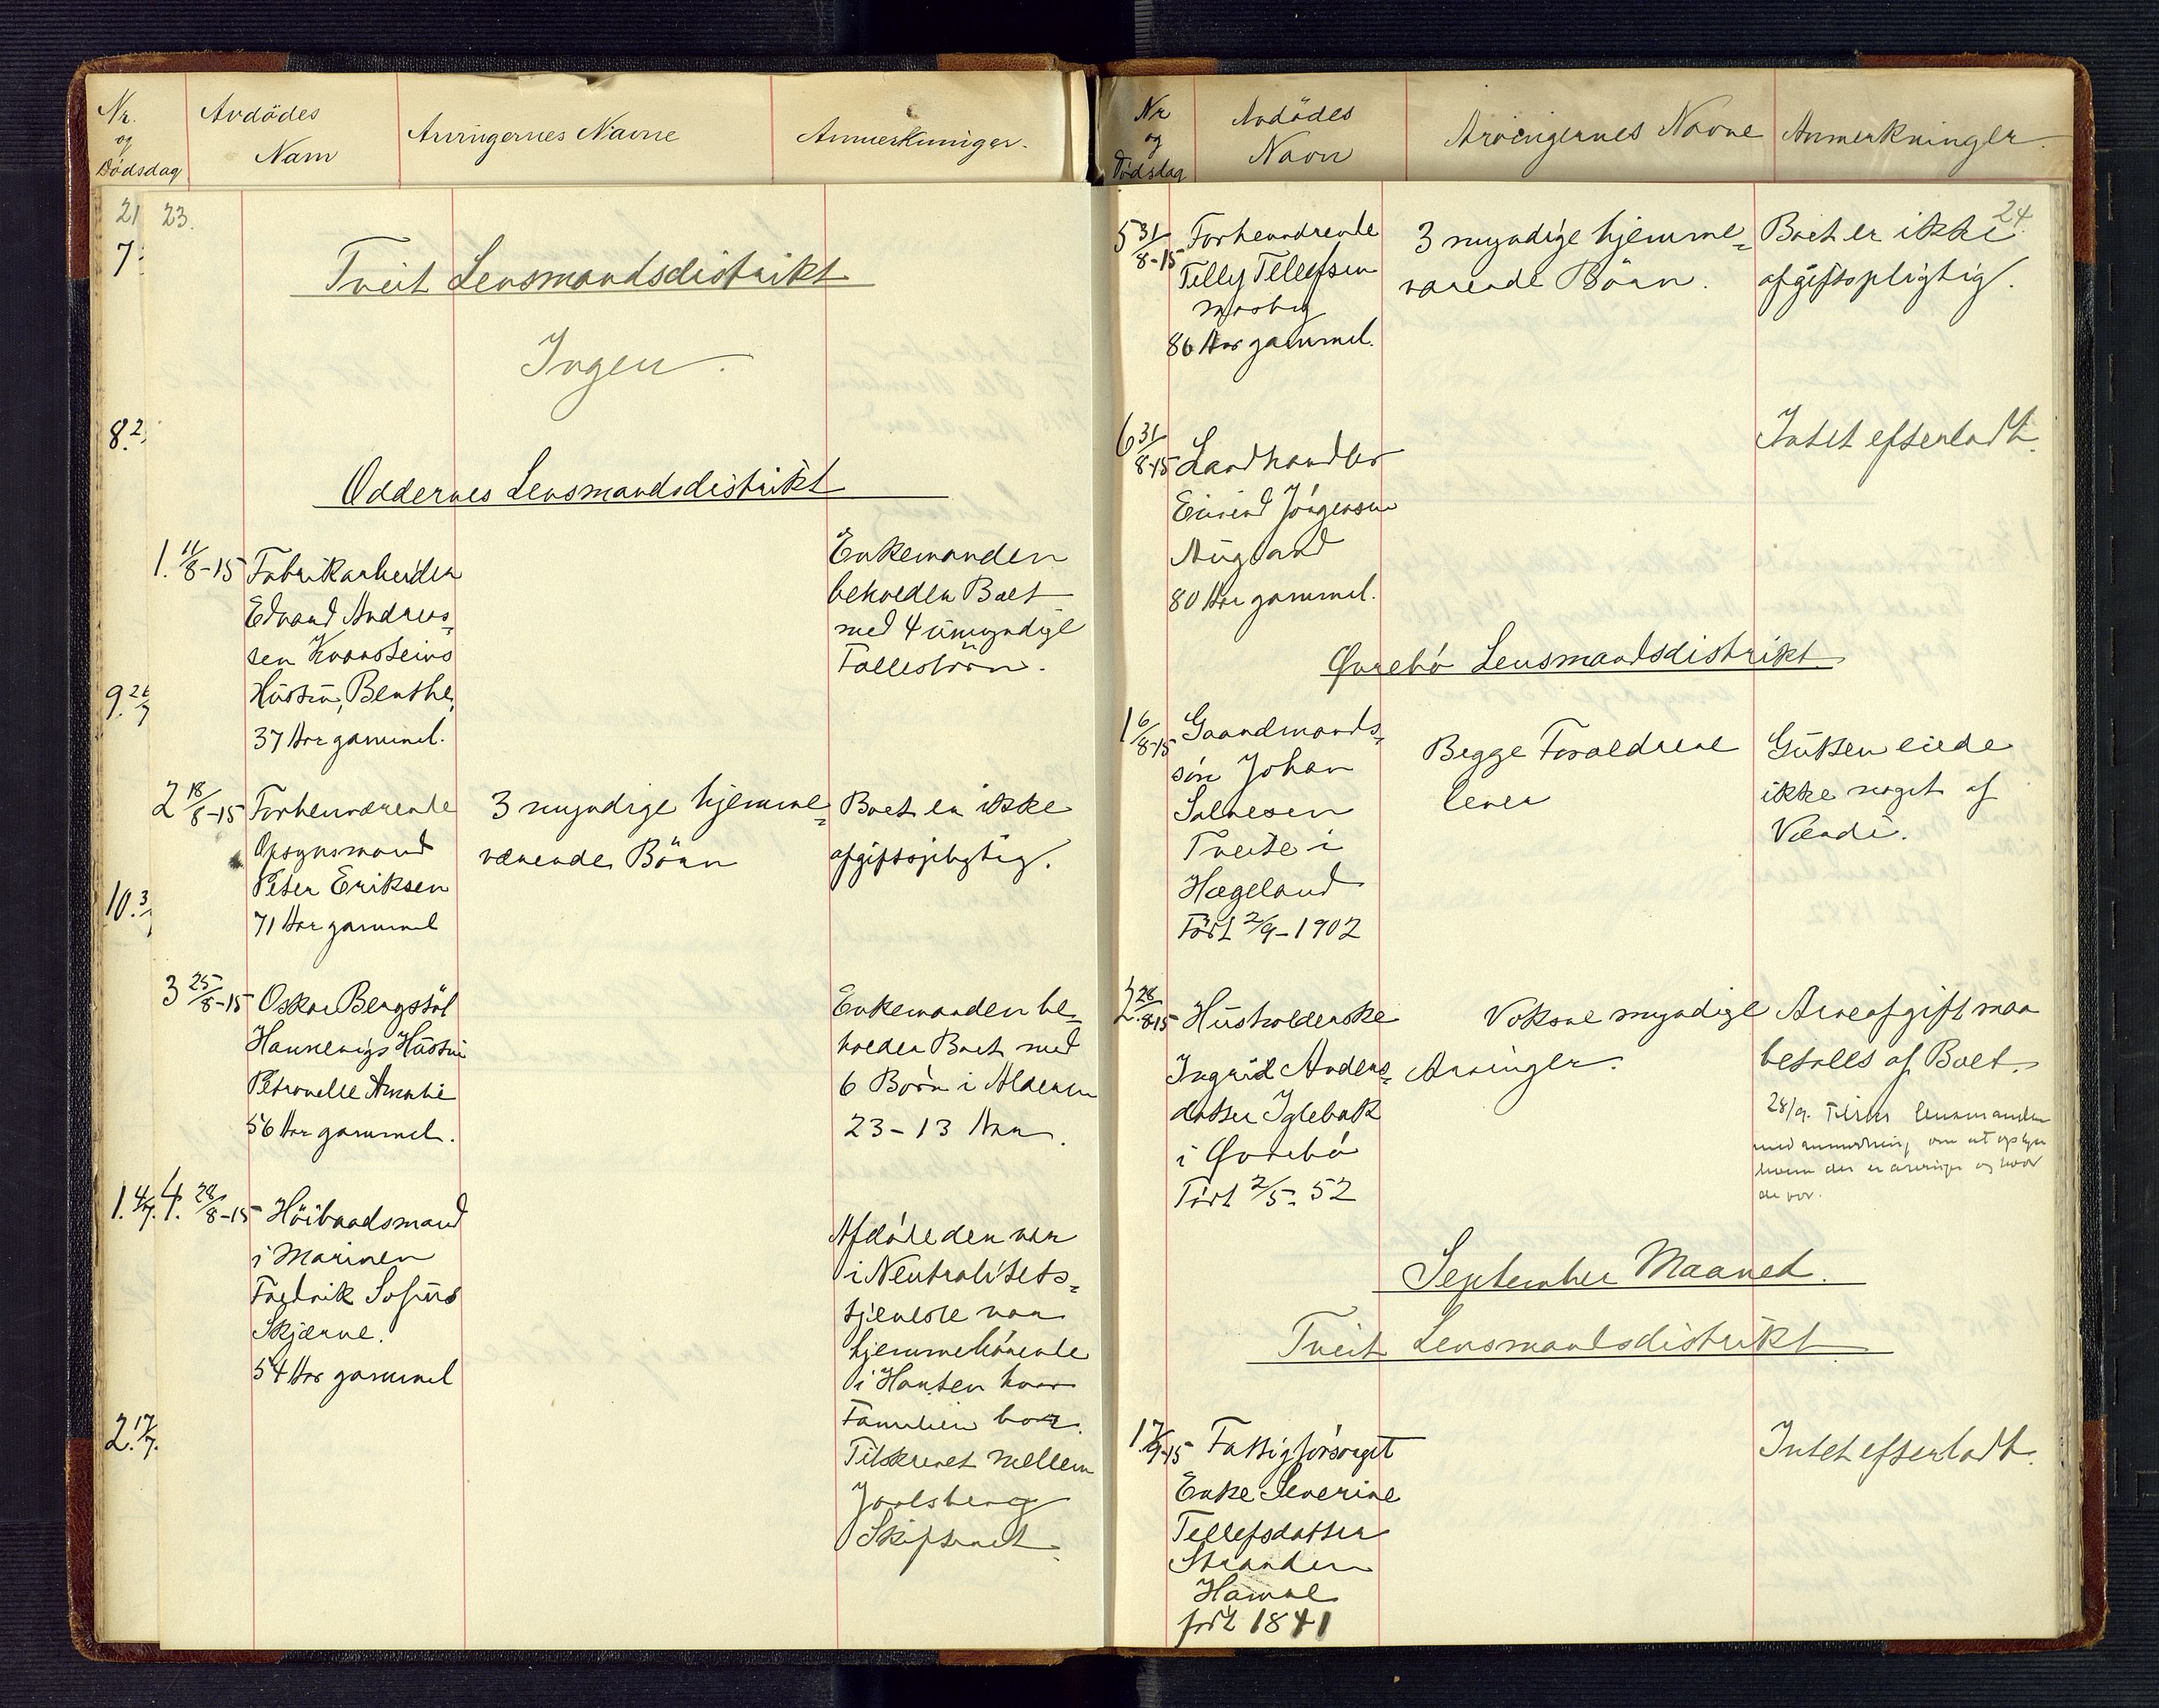 Nr.
og
Dödsdag
Avdödes
Navn
Arvingernes Navne
Anmerkninger.
21
7.
8. 2/
9. 26/7
10. 3/
1. 4/7.
2. 17/7.
23.
Tveit Lensmandsdistrikt
Ingen.
Oddernes Lensmandsdistrikt
1. 11/8-15 Fabrikarbeider
Edvard Andreas-
sen Kvarsteins
Hustru, Benthe,
37 Aar gammel.
Enkemanden
beholder Boet
med 4 umyndige
Fællesbörn.
2 18/8-15 Forhenværende
Opsynsmand
Peter Eriksen
71 Aar gammel
3 myndige hjemme-
værende Börn
Boet er ikke
afgiftspligtig.
3 25/8-15 Oskar Bergstöl
Hannevigs Hustru
Petronelle Amalie
56 Aar gammel.
Enkemanden be-
holder Boet med
6 Börn i Alderen
23-13 Aar.
4. 28/8-15 Höibaadsmand
i Marinen
Fredrik Sofus
Skjærve.
54 Aar gammel
Afdöde der var
i Neutralitets-
tjeneste var
hjemmehörende
i Horten hvor
Familien bor.
Tilskrevet mellem
Jarlsberg
Skifteret.
Nr
og
Dödsdag
Avdödes
Navn
Arvingernes Navne
Anmerkninger.
24.
5 31/8-15 Forhenværende
Telly Tellefsen
Mosby
86 Aar gammel.
3 myndige hjemme-
værende Börn.
Boet er ikke
afgiftspligtig.
6 31/8-15 Landhandler
Eivind Jörgensen
Augland
80 Aar gammel.
Intet efterladt.
Øvrebö Lensmandsdistrikt
1 6/8-15 Gaardmands-
sön Johan
Salvesen
Tveite i
Hægeland
Födt 2/9-1902
Begge Forældrene
lever
Gutten eiede
ikke noget af
Værdi.
2. 28/8-15 Husholderske
Ingrid Anders-
datter Iglebæk
i Øvrebö
Födt 2/5. 52
Voksne myndige
Arvinger.
Arveafgift maa
betales af Boet.
28/9. Tilskr lensmanden
med anmodning om at opgi
hvem der er arvinger og hvor
de bor.
September Maaned.
Tveit Lensmandsdistrikt
1 7/9-15 Fattigforsörget
Enke Severine
Tellefsdatter
Stranden
Hamre
född 1841
Intet efterladt.